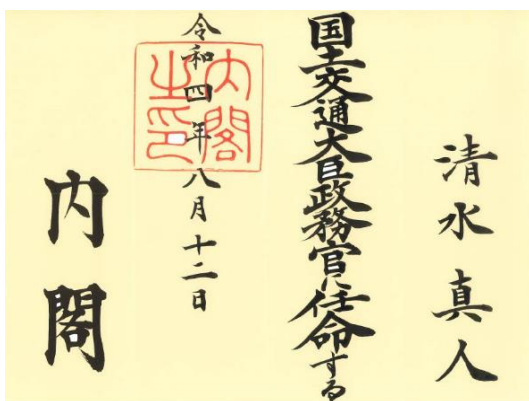 清水真人
国土交通大臣政務官に任命する
令和四年八月十二日
内閣之印
内閣